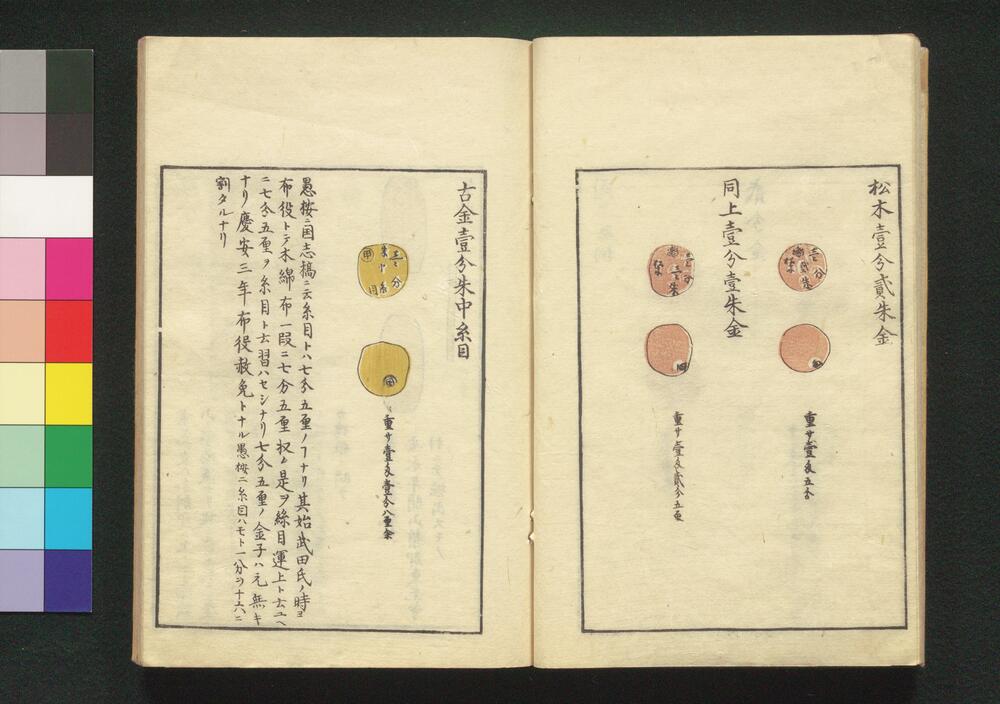 松木壹分貳朱金
壹分
貳朱
重サ壹匁五分
同上壹分壹朱金
壹分
壹朱
重サ壹匁貳分五厘
古金壹分朱中糸目
壹分
朱中糸目
重サ壹匁壹分八厘余
愚按ニ国志稿ニ云糸目トハ七分五厘ノヿナリ其始武田氏ノ時ヨ
布役トテ木綿布一段ニ七分五厘収ム是ヲ絲目運上ト云ユヘ
ニ七分五厘ヲ糸目ト云習ハセシナリ七分五厘ノ金子ハ元無キ
ナリ慶安三年布役赦免トナル愚按ニ糸目ハモト一分ヲ十六ニ
割タルナリ